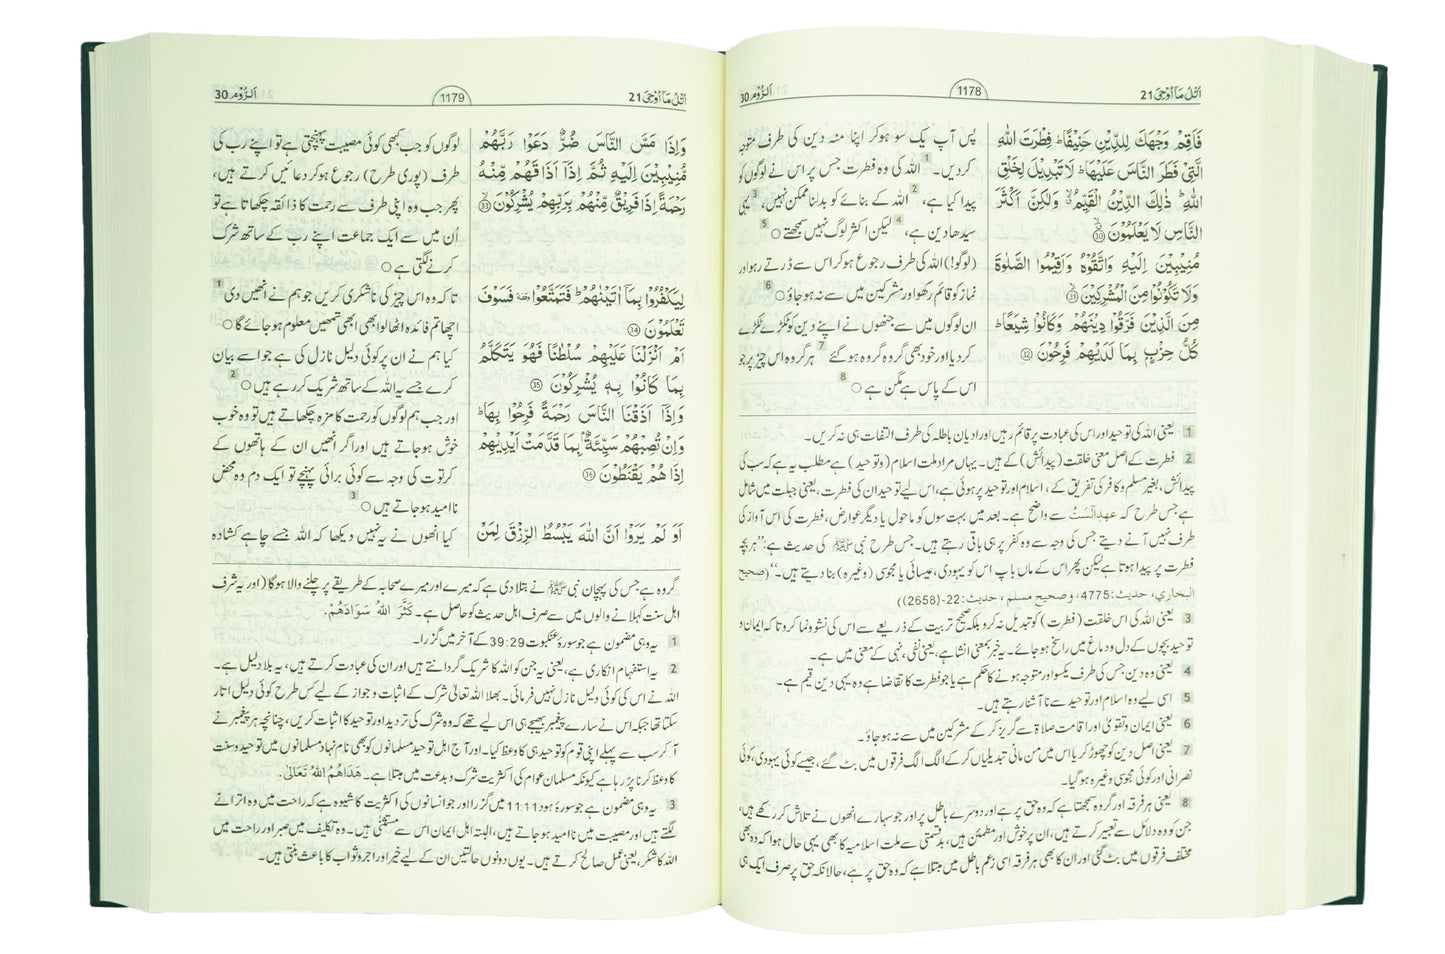 اُتْلُ مَا اُوْحِیَ 21
1178
اَلرُّوْم 30
فَاَقِمْ وَجْهَكَ لِلدِّيْنِ حَنِيْفًا ؕ فِطْرَتَ اللّٰهِ
الَّتِيْ فَطَرَ النَّاسَ عَلَيْهَا ؕ لَا تَبْدِيْلَ لِخَلْقِ
اللّٰهِ ؕ ذٰلِكَ الدِّيْنُ الْقَيِّمُ ۙ وَلٰكِنَّ اَكْثَرَ
النَّاسِ لَا يَعْلَمُوْنَ ۙ 30
مُنِيْبِيْنَ اِلَيْهِ وَاتَّقُوْهُ وَاَقِيْمُوا الصَّلٰوةَ
وَلَا تَكُوْنُوْا مِنَ الْمُشْرِكِيْنَ ۙ 31
مِنَ الَّذِيْنَ فَرَّقُوْا دِيْنَهُمْ وَكَانُوْا شِيَعًا ؕ
كُلُّ حِزْبٍۭ بِمَا لَدَيْهِمْ فَرِحُوْنَ 32
پس آپ یک سو ہوکر اپنا منہ دین کی طرف متوجہ
کردیں۔ 1 اللہ کی وہ فطرت جس پر اس نے لوگوں کو
پیدا کیا ہے، 2 اللہ کے بنائے کو بدلنا ممکن نہیں، 3 یہی
سیدھا دین ہے، 4 لیکن اکثر لوگ نہیں سمجھتے ○ 5
(لوگو!) اللہ کی طرف رجوع ہوکر اس سے ڈرتے رہو اور
نماز کو قائم رکھو اور مشرکین میں سے نہ ہوجاؤ ○ 6
ان لوگوں میں سے جنھوں نے اپنے دین کو ٹکڑے ٹکڑے
کردیا اور خود بھی گروہ گروہ ہوگئے 7 ہر گروہ اس چیز پر جو
اس کے پاس ہے مگن ہے ○ 8
1 یعنی اللہ کی توحید اور اس کی عبادت پر قائم رہیں اور ادیان باطلہ کی طرف التفات ہی نہ کریں۔
2 فطرت کے اصل معنی خلقت (پیدائش) کے ہیں۔ یہاں مراد ملت اسلام (و توحید) ہے مطلب یہ ہے کہ سب کی
پیدائش، بغیر مسلم و کافر کی تفریق کے، اسلام اور توحید پر ہوئی ہے، اس لیے توحید ان کی فطرت، یعنی جبلت میں شامل
ہے جس طرح کہ عہدِ اَلست سے واضح ہے۔ بعد میں بہت سوں کو ماحول یا دیگر عوارض، فطرت کی اس آواز کی
طرف نہیں آنے دیتے جس کی وجہ سے وہ کفر پر ہی باقی رہتے ہیں۔ جس طرح نبی ﷺ کی حدیث ہے: ”ہر بچہ
فطرت پر پیدا ہوتا ہے لیکن پھر اس کے ماں باپ اس کو یہودی، عیسائی یا مجوسی (وغیرہ) بنا دیتے ہیں۔“ (صحیح
البخاري، حديث: 4775، و صحيح مسلم، حديث: 22-(2658))
3 یعنی اللہ کی اس خلقت (فطرت) کو تبدیل نہ کرو بلکہ صحیح تربیت کے ذریعے سے اس کی نشوونما کرو تاکہ ایمان و
توحید بچوں کے دل و دماغ میں راسخ ہوجائے۔ یہ خبر بمعنی انشا ہے، یعنی نفی، نہی کے معنی میں ہے۔
4 یعنی وہ دین جس کی طرف یکسو اور متوجہ ہونے کا حکم ہے یا جو فطرت کا تقاضا ہے وہ یہی دین قیم ہے۔
5 اسی لیے وہ اسلام اور توحید سے نا آشنا رہتے ہیں۔
6 یعنی ایمان و تقویٰ اور اقامت صلاۃ سے گریز کرکے مشرکین میں سے نہ ہوجاؤ۔
7 یعنی اصل دین کو چھوڑ کر یا اس میں من مانی تبدیلیاں کرکے الگ الگ فرقوں میں بٹ گئے، جیسے کوئی یہودی، کوئی
نصرانی اور کوئی مجوسی وغیرہ ہوگیا۔
8 یعنی ہر فرقہ اور گروہ سمجھتا ہے کہ وہ حق پر ہے اور دوسرے باطل پر اور جو سہارے انھوں نے تلاش کر رکھے ہیں،
جن کو وہ دلائل سے تعبیر کرتے ہیں، ان پر خوش اور مطمئن ہیں، بدقسمتی سے ملت اسلامیہ کا بھی یہی حال ہوا کہ وہ بھی
مختلف فرقوں میں بٹ گئی اور ان کا بھی ہر فرقہ اسی زعم باطل میں مبتلا ہے کہ وہ حق پر ہے، حالانکہ حق پر صرف ایک ہی
اُتْلُ مَا اُوْحِیَ 21
1179
اَلرُّوْم 30
وَاِذَا مَسَّ النَّاسَ ضُرٌّ دَعَوْا رَبَّهُمْ
مُّنِيْبِيْنَ اِلَيْهِ ثُمَّ اِذَاۤ اَذَاقَهُمْ مِّنْهُ
رَحْمَةً اِذَا فَرِيْقٌ مِّنْهُمْ بِرَبِّهِمْ يُشْرِكُوْنَ ۙ 33
لِيَكْفُرُوْا بِمَاۤ اٰتَيْنٰهُمْ ؕ فَتَمَتَّعُوْا وقفة فَسَوْفَ
تَعْلَمُوْنَ 34
اَمْ اَنْزَلْنَا عَلَيْهِمْ سُلْطٰنًا فَهُوَ يَتَكَلَّمُ
بِمَا كَانُوْا بِهٖ يُشْرِكُوْنَ 35
وَاِذَاۤ اَذَقْنَا النَّاسَ رَحْمَةً فَرِحُوْا بِهَا ؕ
وَاِنْ تُصِبْهُمْ سَيِّئَةٌۢ بِمَا قَدَّمَتْ اَيْدِيْهِمْ
اِذَا هُمْ يَقْنَطُوْنَ 36
اَوَ لَمْ يَرَوْا اَنَّ اللّٰهَ يَبْسُطُ الرِّزْقَ لِمَنْ
لوگوں کو جب کبھی کوئی مصیبت پہنچتی ہے تو اپنے رب کی
طرف (پوری طرح) رجوع ہوکر دعائیں کرتے ہیں،
پھر جب وہ اپنی طرف سے رحمت کا ذائقہ چکھاتا ہے تو
اُن میں سے ایک جماعت اپنے رب کے ساتھ شرک
کرنے لگتی ہے ○
تاکہ وہ اس چیز کی ناشکری کریں جو ہم نے انھیں دی 1
اچھا تم فائدہ اٹھا لو ابھی ابھی تمھیں معلوم ہوجائے گا ○
کیا ہم نے ان پر کوئی دلیل نازل کی ہے جو اسے بیان
کرے جسے یہ اللہ کے ساتھ شریک کررہے ہیں ○ 2
اور جب ہم لوگوں کو رحمت کا مزہ چکھاتے ہیں تو وہ خوب
خوش ہوجاتے ہیں اور اگر انھیں ان کے ہاتھوں کے
کرتوت کی وجہ سے کوئی برائی پہنچے تو ایک دم وہ محض
ناامید ہوجاتے ہیں ○ 3
کیا انھوں نے یہ نہیں دیکھا کہ اللہ جسے چاہے کشادہ
گروہ ہے جس کی پہچان نبی ﷺ نے بتلا دی ہے کہ میرے اور میرے صحابہ کے طریقے پر چلنے والا ہوگا (اور یہ شرف
اہل سنت کہلانے والوں میں سے صرف اہل حدیث کو حاصل ہے۔ كَثَّرَ اللّٰهُ سَوَادَهُمْ.
1 یہ وہی مضمون ہے جو سورۂ عنکبوت 39:29 کے آخر میں گزرا۔
2 یہ استفہام انکاری ہے، یعنی یہ جن کو اللہ کا شریک گردانتے ہیں اور ان کی عبادت کرتے ہیں، یہ بلا دلیل ہے۔
اللہ نے اس کی کوئی دلیل نازل نہیں فرمائی۔ بھلا اللہ تعالیٰ شرک کے اثبات و جواز کے لیے کس طرح کوئی دلیل اتار
سکتا تھا جبکہ اس نے سارے پیغمبر بھیجے ہی اس لیے تھے کہ وہ شرک کی تردید اور توحید کا اثبات کریں، چنانچہ ہر پیغمبر نے
آ کر سب سے پہلے اپنی قوم کو توحید ہی کا وعظ کیا۔ اور آج اہل توحید مسلمانوں کو بھی نام نہاد مسلمانوں میں توحید و سنت
کا وعظ کرنا پڑ رہا ہے کیونکہ مسلمان عوام کی اکثریت شرک و بدعت میں مبتلا ہے۔ هَدَاهُمُ اللّٰهُ تَعَالٰى.
3 یہ وہی مضمون ہے جو سورۂ ہود 11:11 میں گزرا اور جو انسانوں کی اکثریت کا شیوہ ہے کہ راحت میں وہ اترانے
لگتے ہیں اور مصیبت میں ناامید ہوجاتے ہیں، البتہ اہل ایمان اس سے مستثنیٰ ہیں۔ وہ تکلیف میں صبر اور راحت میں
اللہ کا شکر، یعنی عمل صالح کرتے ہیں۔ یوں دونوں حالتیں ان کے لیے خیر اور اجر و ثواب کا باعث بنتی ہیں۔